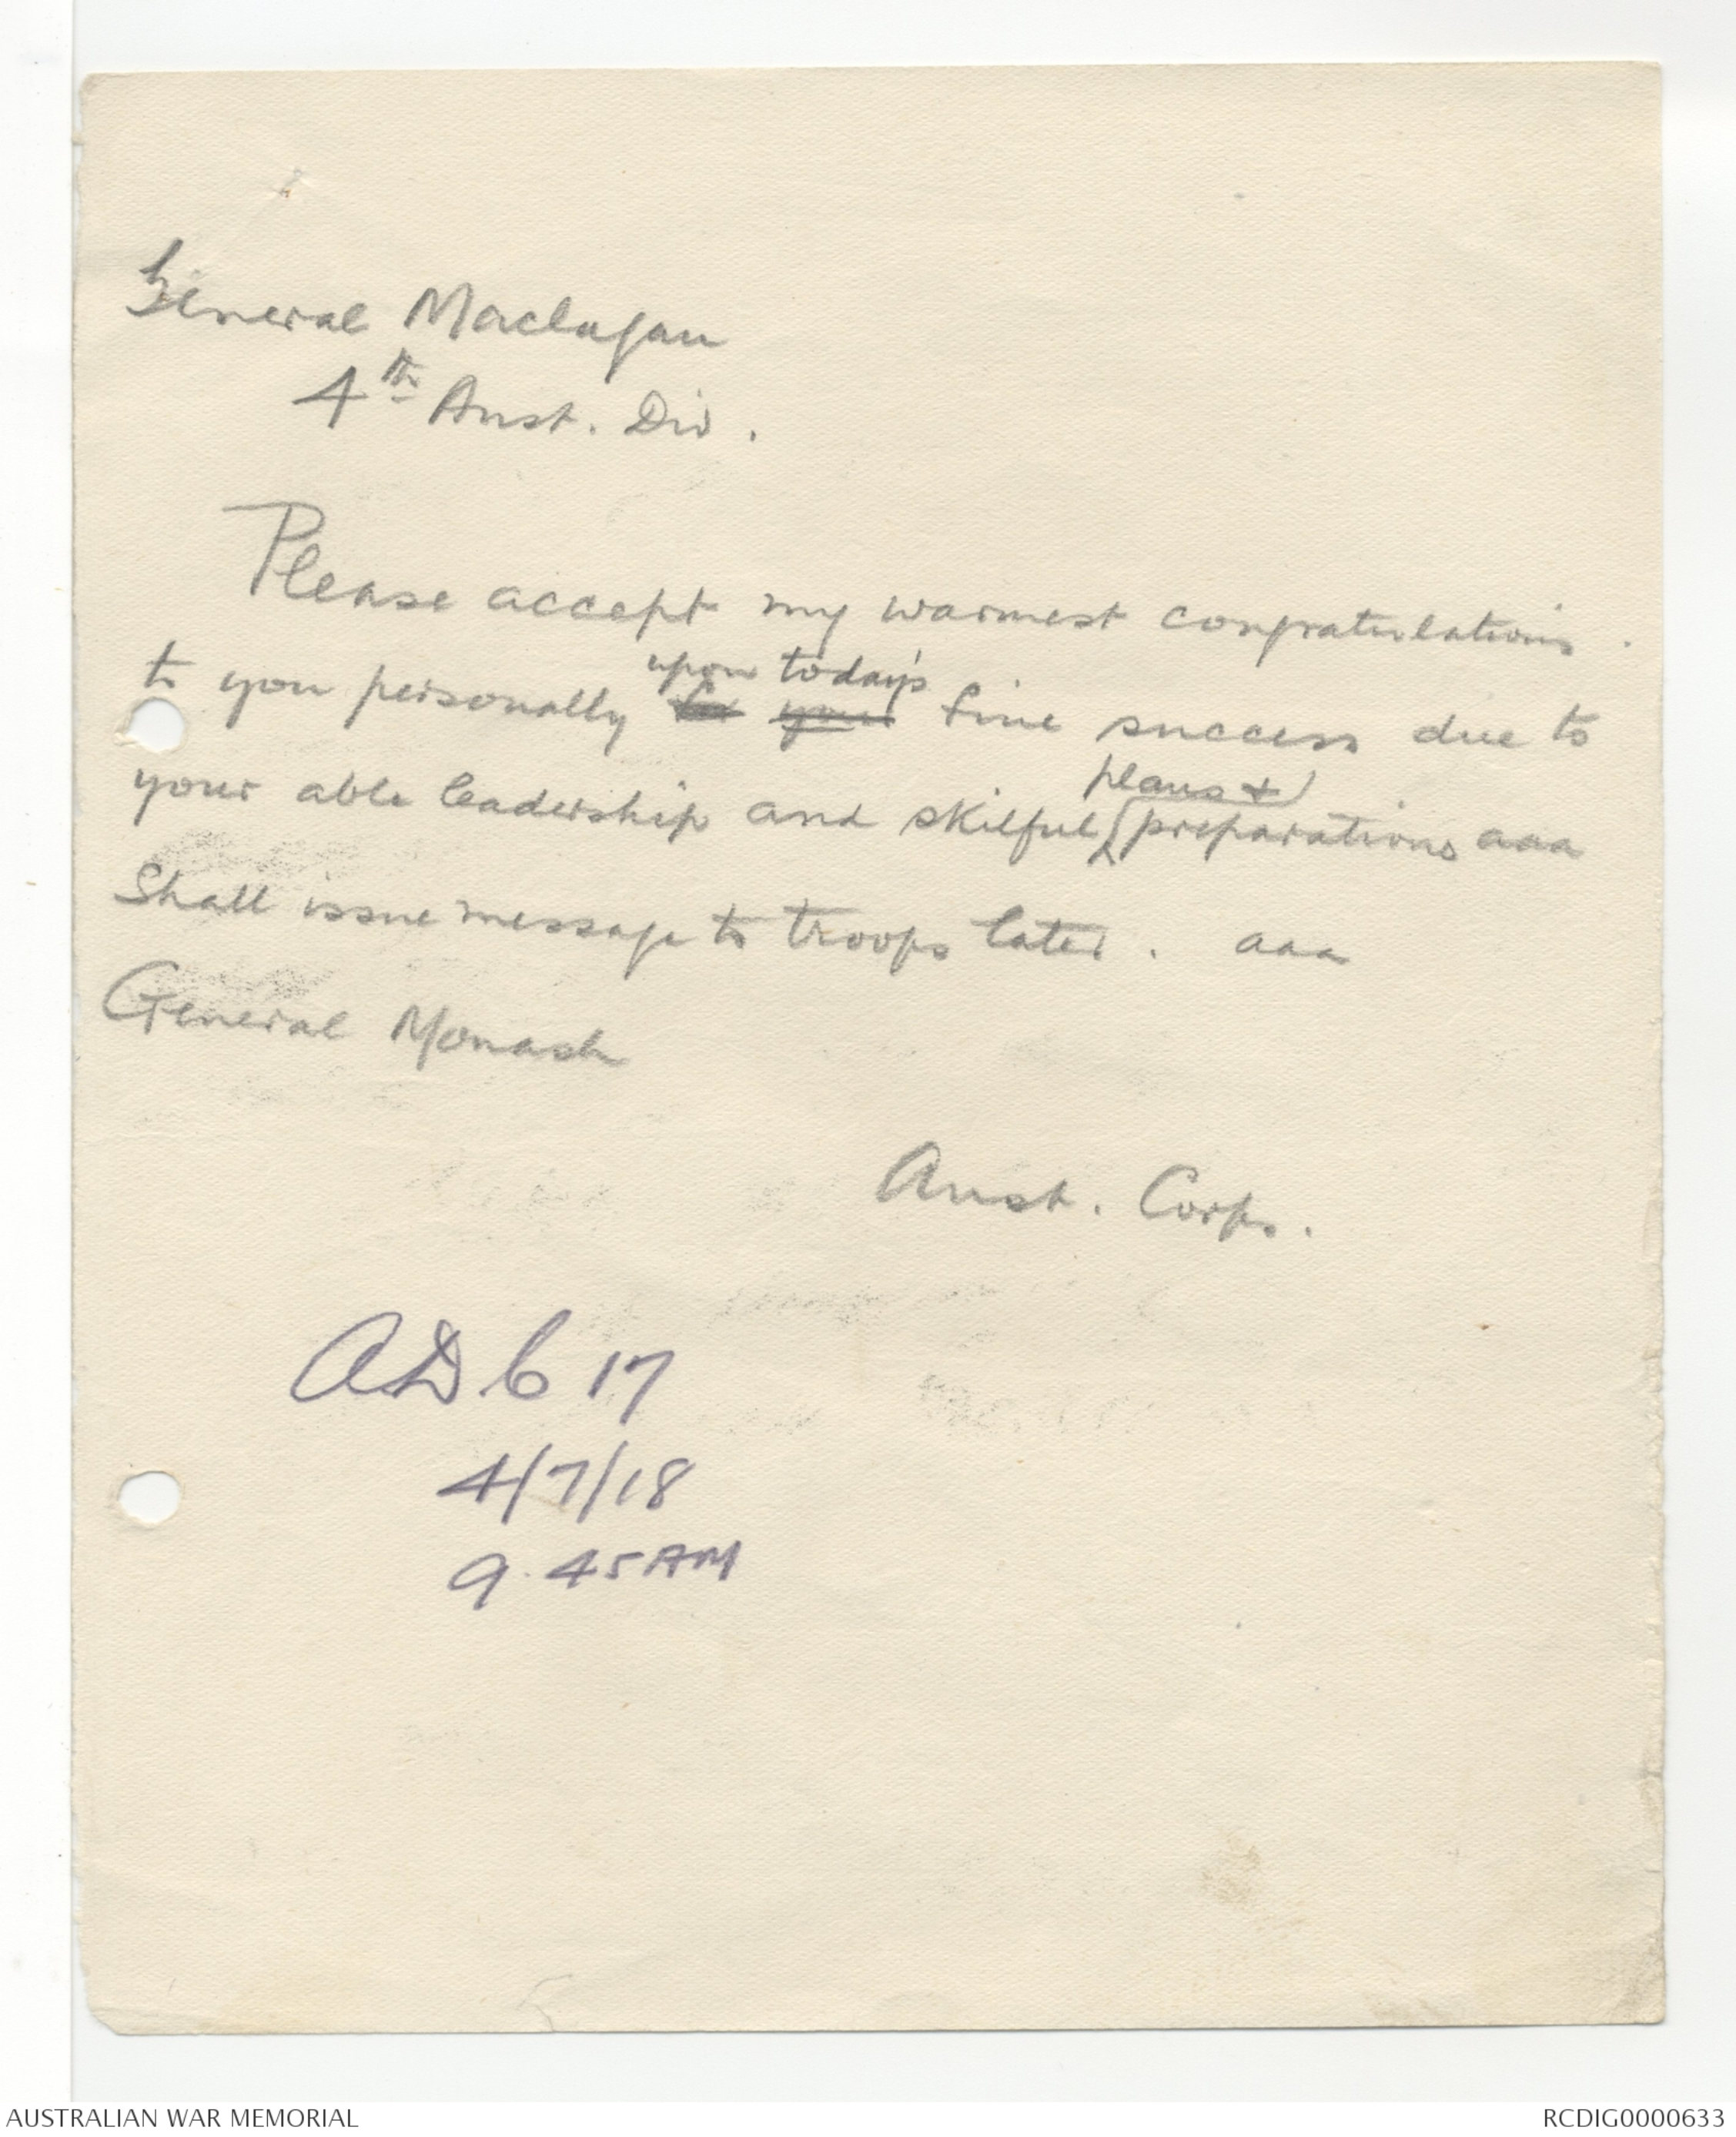 General Maclagan
4th Aust. Div.
Please accept my warmest congratulations.
upon today's
to you personally your fine success due to
plans &
your able leadership and skilful preparations aaa
Shall issue message to troops later. aaa
General Monash
Aust. Corps.
4/7/18
9.45 AM
AUSTRALIAN WAR MEMORIAL
RCDIG0000633